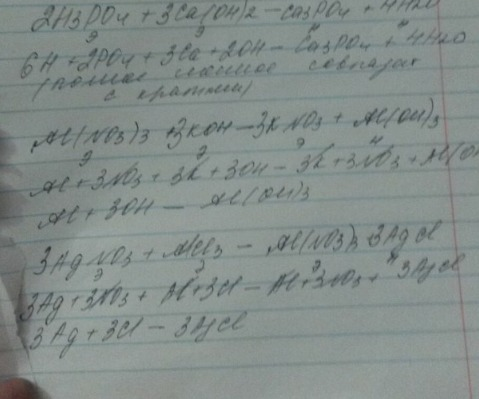 2H3PO4 + 3Ca(OH)2 - Ca3PO4 + 4H2O
6H + 2PO4 + 3Ca + 2OH - Ca3PO4 + 4H2O
(полное ионное совпадает
с кратким)
Al(NO3)3 + 3KOH - 3KNO3 + Al(OH)3
Al + 3NO3 + 3K + 3OH - 3K + 3NO3 + Al(OH
Al + 3OH - Al(OH)3
3AgNO3 + AlCl3 - Al(NO3)3 3AgCl
3Ag + 3NO3 + Al + 3Cl - Al + 3NO3 + 3AgCl
3Ag + 3Cl - 3AgCl